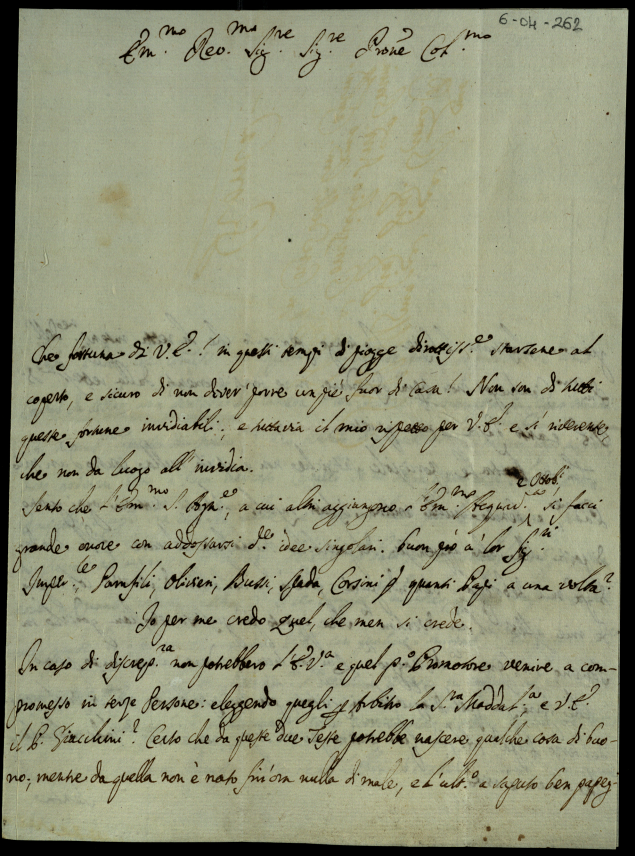 6-04-262
Em.mo Rev.mo Sig.re Sig.re Prone Col.mo
Che fortuna di V.E.! in questi tempi di piogge dirottiss.e starsene al
coperto, e sicuro di non dover porre un piè fuor di casa! Non son di tutti
queste fortune invidiabili; e tuttavia il mio rispetto per V.E. e sì riverente,
che non da luogo all'invidia.
Sento che l'Em.mo S. , a cui altri aggiungono l'Em.mo Acquav.a e Ottob.i si facci
grande onore con addossarsi d.e idee singolari. buon prò a lor Sig.ri
Panfili, Olivieri, Bussi, Spada, Corsini quanti Papi a una volta?
Io per me credo quel, che men si crede.
In caso di discrep.za non potrebbero l'E.V.a e quel p.o Promotore venire a com-
promesso in terze Persone: eleggendo quegli p Arbitro la S.ra Maddal.a e V.E.
il P. Giacchini? Certo che da queste due Teste potrebbe nascere qualche cosa di buo-
no; mentre da quella non è nato fin'ora nulla di male, e l'ult.o a saputo ben